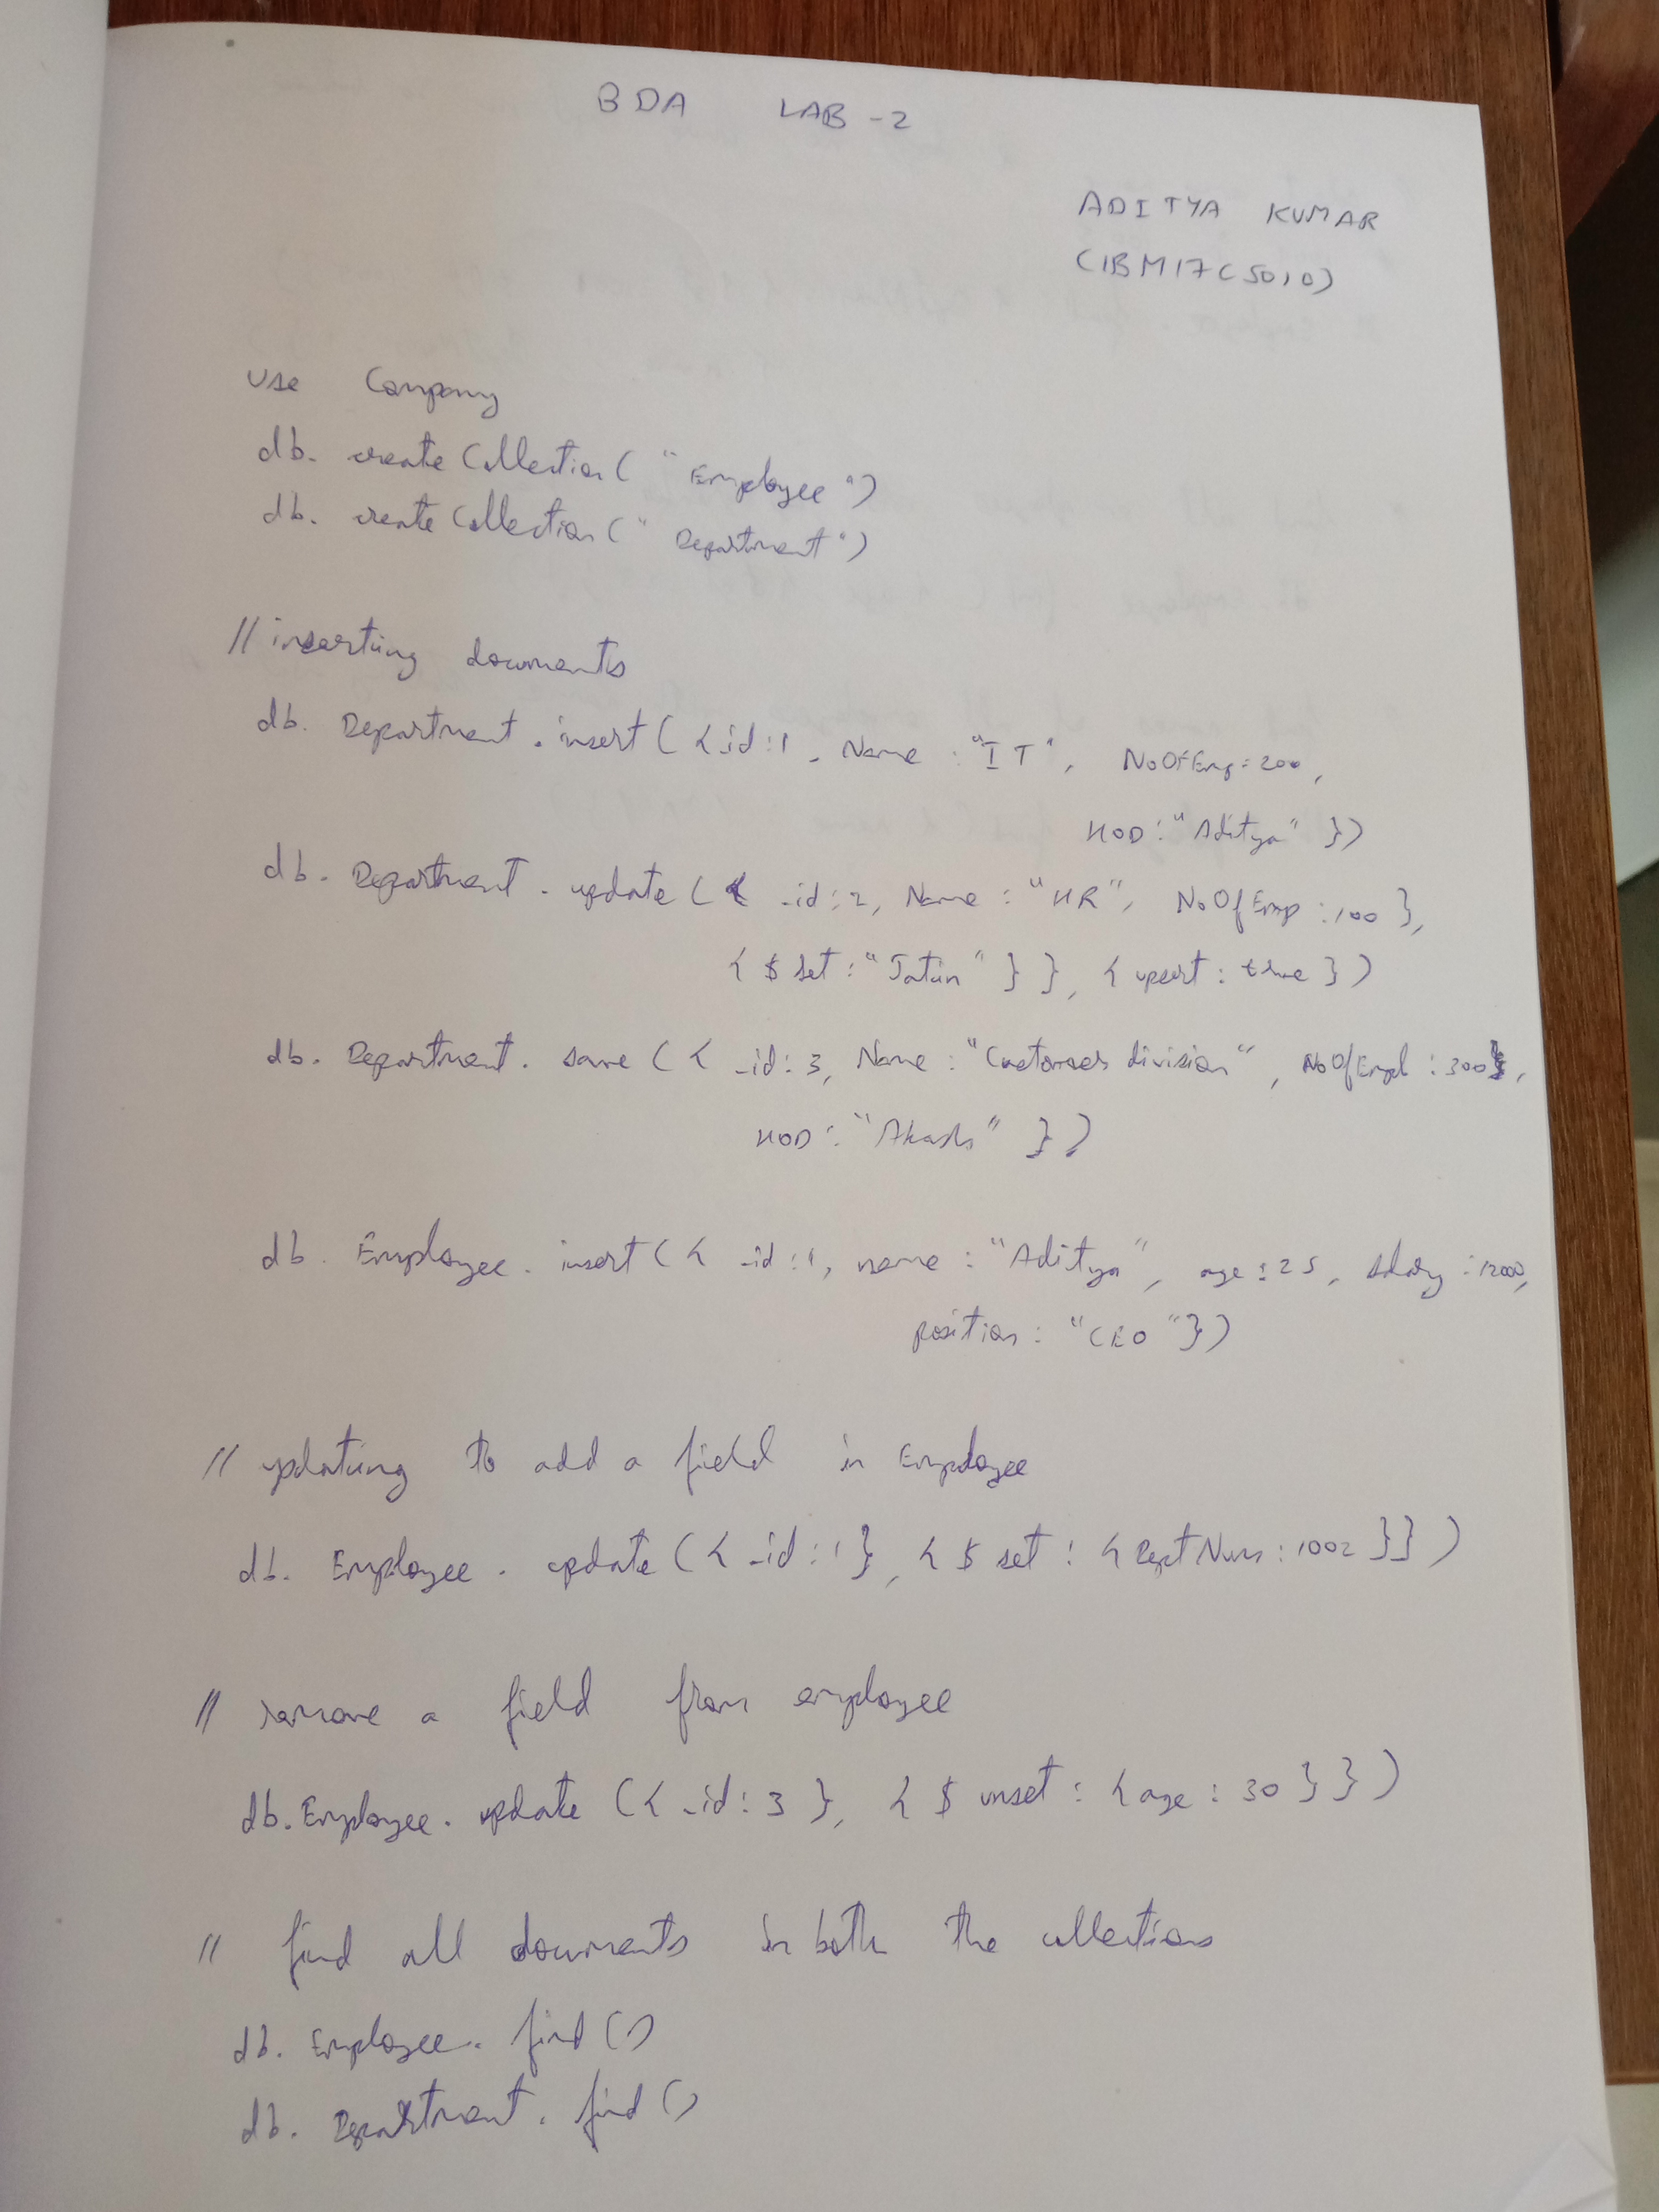 BDA LAB -2
ADITYA KUMAR
(1BM17CS010)
use Company
db. createCollection( "Employee")
db. createCollection (" Department")
// inserting documents
db. Department . insert ( {_id:1 , Name : "IT", NoOfEmp: 200,
HOD: "Aditya" })
db. Department . update ( { _id:2, Name : "HR", NoOfEmp :100 },
{ $ set : "Jatin" } }, { upsert : true } )
db. Department. save ( { _id: 3, Name : "Customer division", NoOfEmpl : 300,
HOD : "Akash" } )
db Employee . insert ( { _id :1, name : "Aditya", age : 25, salary : 12000,
position : "CEO "})
// updating to add a field in Employee
db. Employee . update ( { _id : 1 }, { $ set : { DeptNum : 1002 }} )
// remove a field from employee
db.Employee. update ( { _id: 3 }, { $ unset : { age : 30 } } )
// find all documents in both the collections
db. Employee. find ()
db. Department . find ()